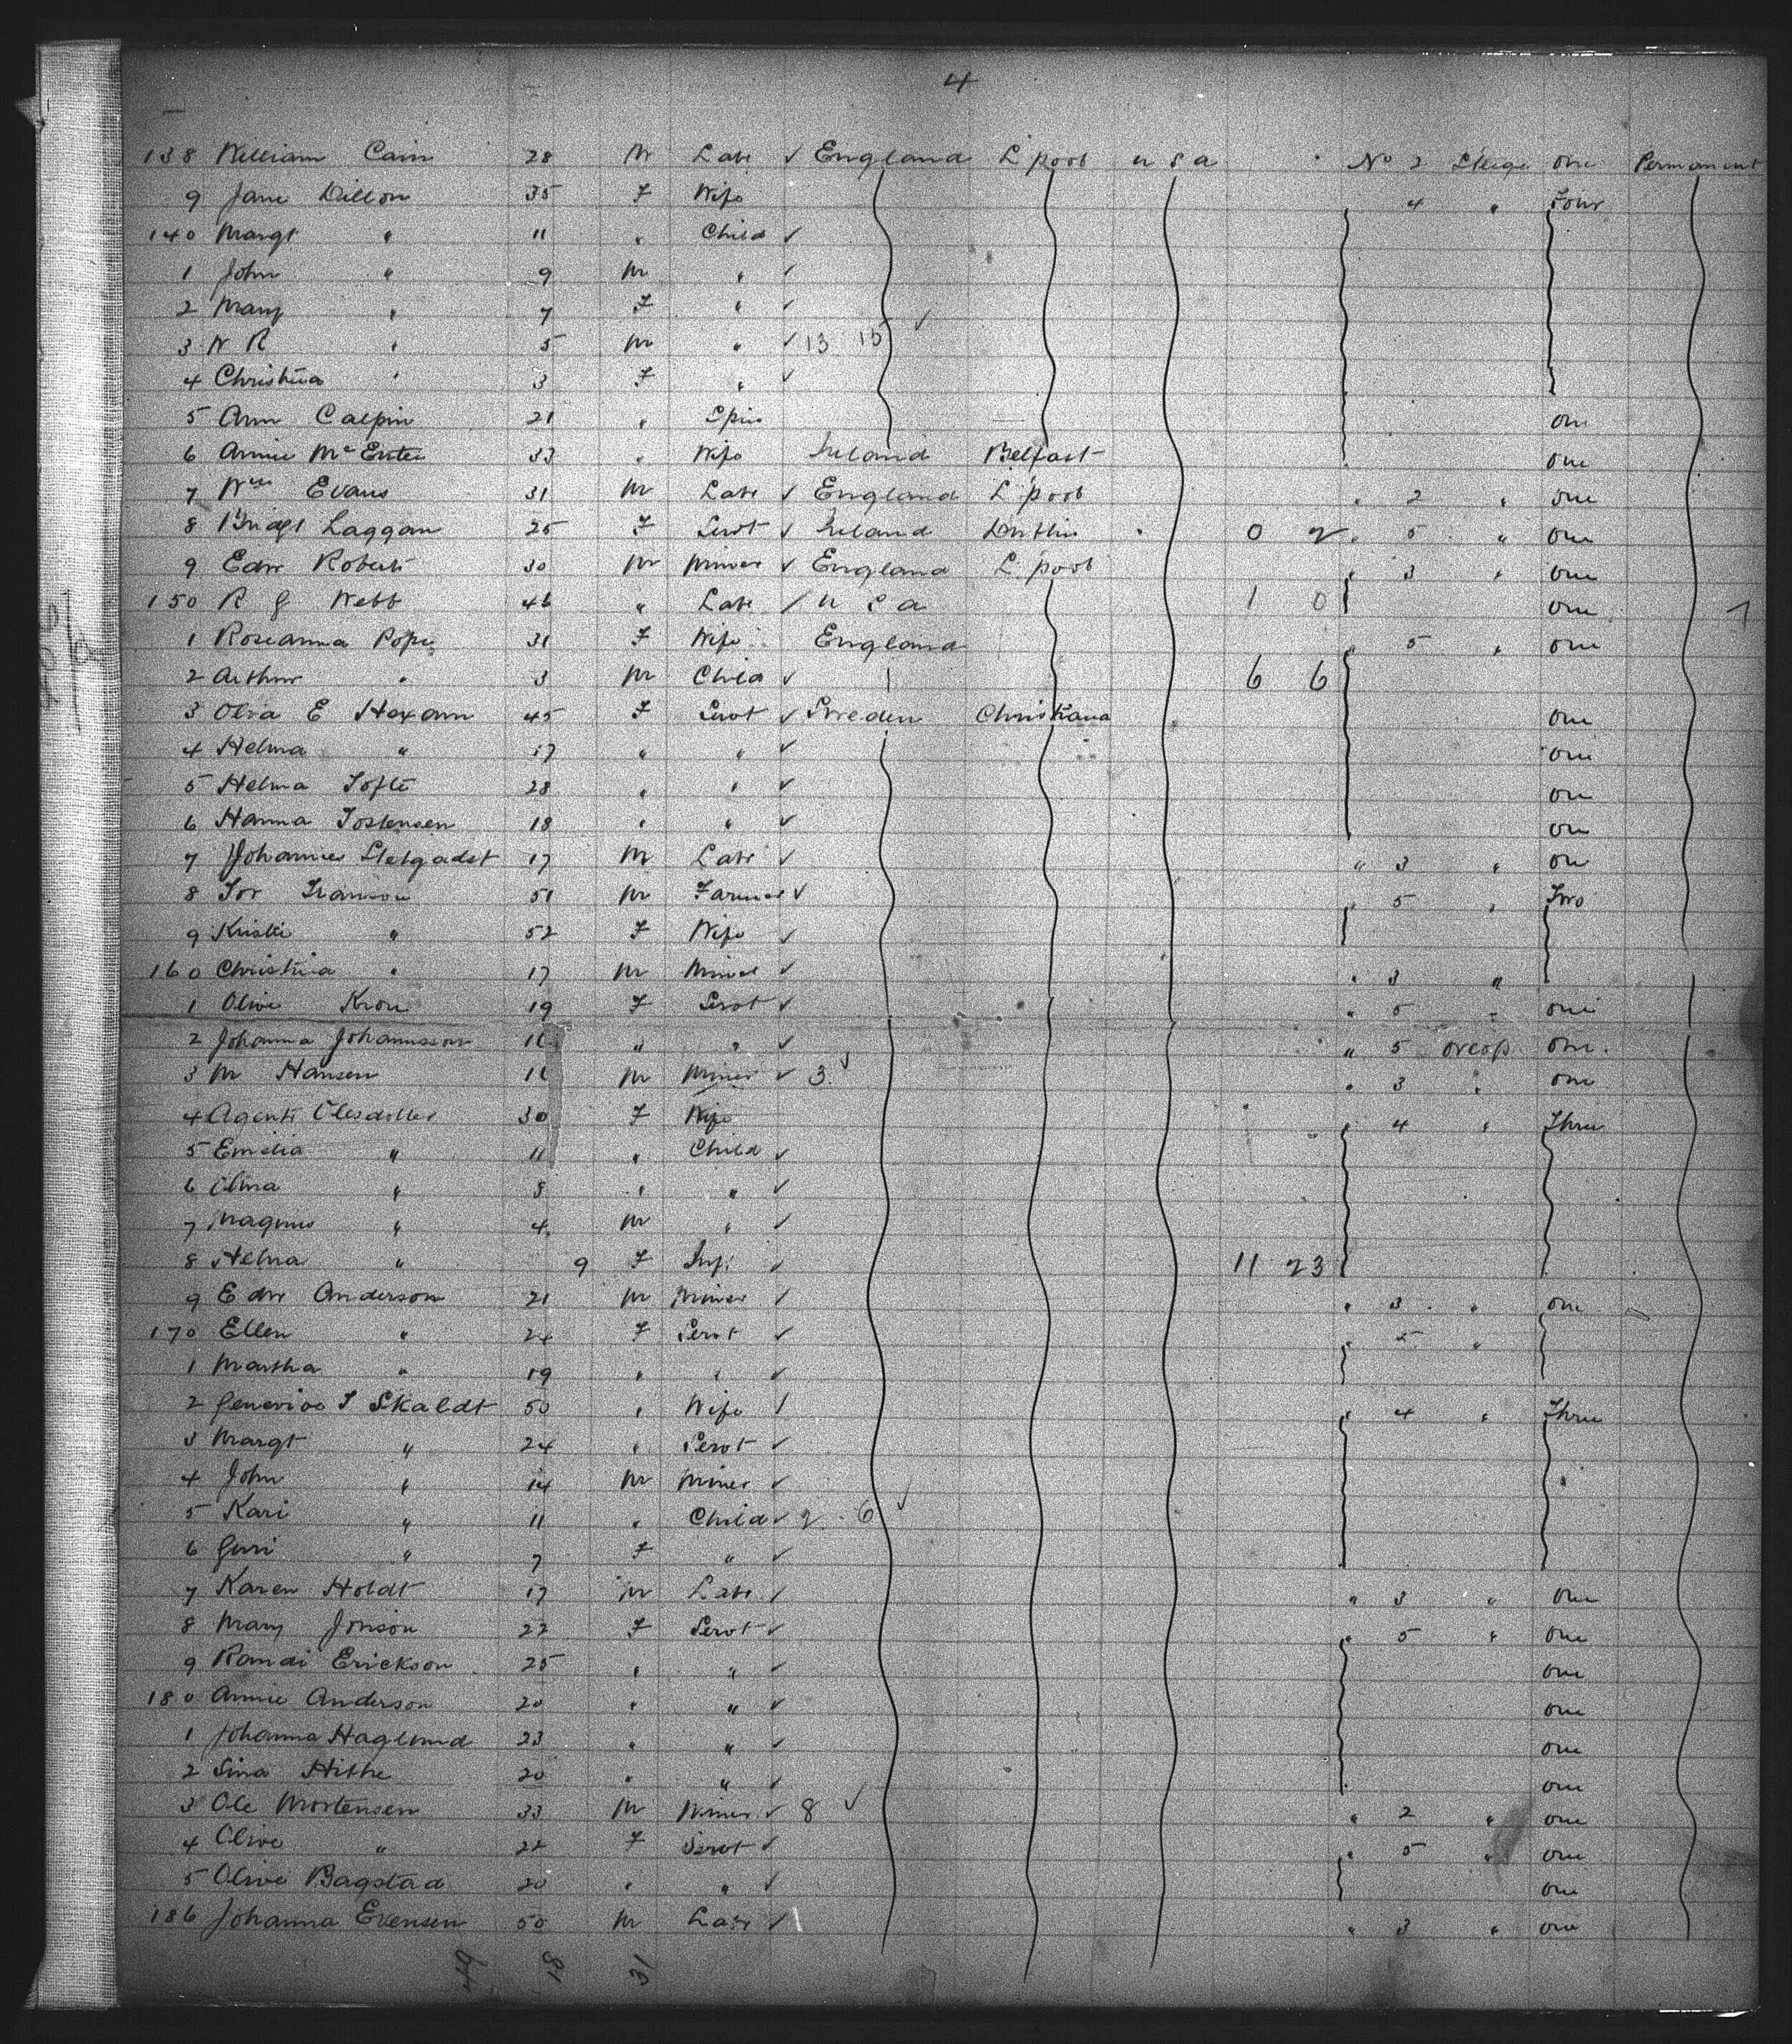 4
138 William Cain 28 M Labr ✓ England L'pool U S A No 2 Steege one Permanent
9 Jane Dillon 35 F Wife 4 " Four
140 Margt " 11 " Child ✓
1 John " 9 M " ✓
2 Mary " 7 F " ✓
3 W R " 5 M " ✓ 13 15 ✓
4 Christina " 3 F " ✓
5 Ann Calpin 21 " Spin one
6 Annie McEntee 33 " Wife Ireland Belfast one
7 Wm Evans 31 M Labr ✓ England L'pool " 2 " one
8 Bridgt Laggan 25 F Servt ✓ Ireland Dublin 0 2 " 5 " one
9 Edw Roberts 30 M Miner ✓ England L'pool " 3 " one
150 R J Webb 46 " Labr ✓ U S A 1 0 one
1 Roseanna Pope 31 F Wife England " 5 " one
2 Arthur " 3 M Child ✓ 6 6
3 Olva E Hoxann 45 F Servt ✓ Sweden Christiana one
4 Helma " 17 " " ✓ one
5 Helma Tofte 28 " " ✓ one
6 Hanna Tostensen 18 " " ✓ one
7 Johannes 17 M Labr ✓ " 3 " one
8 Tor 51 M Farmer ✓ " 5 " Two
9 Kristi " 52 F Wife ✓
160 Christina " 17 M Miner ✓ " 3 "
1 Olive Kron 19 F Servt ✓ " 5 " one
2 Johanna Johannsson " " ✓ " 5 one
3 M Hansen M Miner ✓ 3 ✓ " 3 " one
4 30 F Wife " 4 " Three
5 Emilia " 11 " Child ✓
6 " 8 " " ✓
7 Magnus " 4 M " ✓
8 Helma " 9 F Inft ✓ 11 23
9 Edw Anderson 21 M Miner ✓ " 3 " one
170 Ellen " 24 F Servt ✓ " 5 "
1 Martha " 19 " " ✓
2 Skaldt 50 " Wife ✓ " 4 " Three
3 Margt " 24 " Servt ✓
4 John " 14 M Miner ✓
5 Kari " 11 " Child ✓ 9 6 ✓
6 Guri " 7 F " ✓
7 Karen Holdt 17 M Labr ✓ " 3 " one
8 Mary Jonson 22 F Servt ✓ " 5 " one
9 Randi Erickson 25 " " ✓ one
180 Annie Anderson 20 " " ✓ one
1 Johanna Haglund 23 " " ✓ one
2 Sina Hithe 20 " " ✓ one
3 Ole Mortensen 33 M Miner ✓ 8 ✓ " 2 " one
4 Olive " 22 F Servt ✓ " 5 " one
5 Olive Bagstad 20 " " ✓ one
186 Johanna Evensen 50 M Labr ✓ " 3 " one
49 18 31